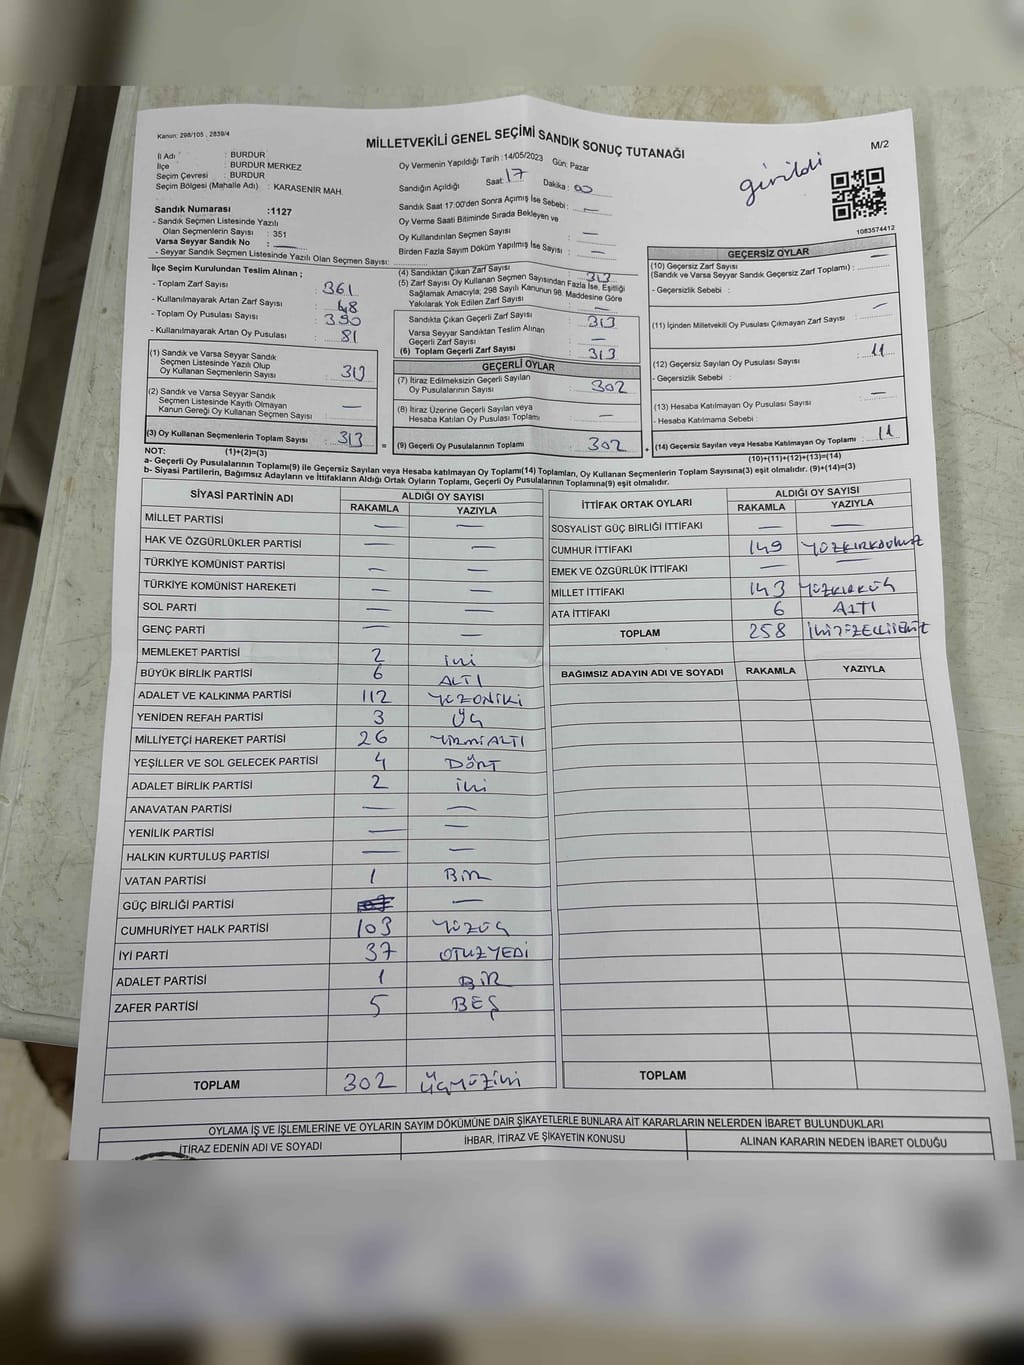 Kanun: 298/105 , 2839/4
MİLLETVEKİLİ GENEL SEÇİMİ SANDIK SONUÇ TUTANAĞI
M/2
İl Adı : BURDUR
İlçe : BURDUR MERKEZ
Seçim Çevresi : BURDUR
Seçim Bölgesi (Mahalle Adı) : KARASENİR MAH.
Oy Vermenin Yapıldığı Tarih : 14/05/2023 Gün: Pazar
Sandığın Açıldığı Saat: 17 Dakika : 00
Sandık Saat 17:00'den Sonra Açılmış İse Sebebi : —
Oy Verme Saati Bitiminde Sırada Bekleyen ve
Oy Kullandırılan Seçmen Sayısı : —
Birden Fazla Sayım Döküm Yapılmış İse Sayısı : —
girildi
1083574412
Sandık Numarası :1127
- Sandık Seçmen Listesinde Yazılı
Olan Seçmenlerin Sayısı : 351
Varsa Seyyar Sandık No : —
- Seyyar Sandık Seçmen Listesinde Yazılı Olan Seçmen Sayısı:
İlçe Seçim Kurulundan Teslim Alınan ;
- Toplam Zarf Sayısı : 361
- Kullanılmayarak Artan Zarf Sayısı : 48
- Toplam Oy Pusulası Sayısı : 390
- Kullanılmayarak Artan Oy Pusulası : 81
(1) Sandık ve Varsa Seyyar Sandık
Seçmen Listesinde Yazılı Olup
Oy Kullanan Seçmenlerin Sayısı : 313
(2) Sandık ve Varsa Seyyar Sandık
Seçmen Listesinde Kayıtlı Olmayan
Kanun Gereği Oy Kullanan Seçmen Sayısı : —
(3) Oy Kullanan Seçmenlerin Toplam Sayısı : 313 =
(4) Sandıktan Çıkan Zarf Sayısı : 313
(5) Zarf Sayısı Oy Kullanan Seçmen Sayısından Fazla İse, Eşitliği
Sağlamak Amacıyla; 298 Sayılı Kanunun 98. Maddesine Göre
Yakılarak Yok Edilen Zarf Sayısı : —
Sandıkta Çıkan Geçerli Zarf Sayısı : 313
Varsa Seyyar Sandıktan Teslim Alınan
Geçerli Zarf Sayısı : —
(6) Toplam Geçerli Zarf Sayısı : 313
GEÇERLİ OYLAR
(7) İtiraz Edilmeksizin Geçerli Sayılan
Oy Pusulalarının Sayısı : 302
(8) İtiraz Üzerine Geçerli Sayılan veya
Hesaba Katılan Oy Pusulası Toplamı : —
(9) Geçerli Oy Pusulalarının Toplamı : 302 +
GEÇERSİZ OYLAR
(10) Geçersiz Zarf Sayısı
(Sandık ve Varsa Seyyar Sandık Geçersiz Zarf Toplamı) : —
- Geçersizlik Sebebi :
(11) İçinden Milletvekili Oy Pusulası Çıkmayan Zarf Sayısı : —
(12) Geçersiz Sayılan Oy Pusulası Sayısı : 11
- Geçersizlik Sebebi :
(13) Hesaba Katılmayan Oy Pusulası Sayısı : —
- Hesaba Katılmama Sebebi :
(14) Geçersiz Sayılan veya Hesaba Katılmayan Oy Toplamı : 11
NOT: (1)+(2)=(3)
(10)+(11)+(12)+(13)=(14)
a- Geçerli Oy Pusulalarının Toplamı(9) ile Geçersiz Sayılan veya Hesaba katılmayan Oy Toplamı(14) Toplamları, Oy Kullanan Seçmenlerin Toplam Sayısına(3) eşit olmalıdır. (9)+(14)=(3)
b- Siyasi Partilerin, Bağımsız Adayların ve İttifakların Aldığı Ortak Oyların Toplamı, Geçerli Oy Pusulalarının Toplamına(9) eşit olmalıdır.
SİYASİ PARTİNİN ADI ALDIĞI OY SAYISI
RAKAMLA YAZIYLA
MİLLET PARTİSİ — —
HAK VE ÖZGÜRLÜKLER PARTİSİ — —
TÜRKİYE KOMÜNİST PARTİSİ — —
TÜRKİYE KOMÜNİST HAREKETİ — —
SOL PARTİ — —
GENÇ PARTİ — —
MEMLEKET PARTİSİ 2 iki
BÜYÜK BİRLİK PARTİSİ 6 ALTI
ADALET VE KALKINMA PARTİSİ 112 YÜZONİKİ
YENİDEN REFAH PARTİSİ 3 ÜÇ
MİLLİYETÇİ HAREKET PARTİSİ 26 YİRMİALTI
YEŞİLLER VE SOL GELECEK PARTİSİ 4 DÖRT
ADALET BİRLİK PARTİSİ 2 iki
ANAVATAN PARTİSİ — —
YENİLİK PARTİSİ — —
HALKIN KURTULUŞ PARTİSİ — —
VATAN PARTİSİ 1 BİR
GÜÇ BİRLİĞİ PARTİSİ —
CUMHURİYET HALK PARTİSİ 103 YÜZÜÇ
İYİ PARTİ 37 OTUZYEDİ
ADALET PARTİSİ 1 BİR
ZAFER PARTİSİ 5 BEŞ
TOPLAM 302 ÜÇYÜZİKİ
İTTİFAK ORTAK OYLARI ALDIĞI OY SAYISI
RAKAMLA YAZIYLA
SOSYALİST GÜÇ BİRLİĞİ İTTİFAKI — —
CUMHUR İTTİFAKI 149 YÜZKIRKDOKUZ
EMEK VE ÖZGÜRLÜK İTTİFAKI — —
MİLLET İTTİFAKI 143 YÜZKIRKÜÇ
ATA İTTİFAKI 6 ALTI
TOPLAM 258 İKİYÜZELLİSEKİZ
BAĞIMSIZ ADAYIN ADI VE SOYADI RAKAMLA YAZIYLA
TOPLAM
OYLAMA İŞ VE İŞLEMLERİNE VE OYLARIN SAYIM DÖKÜMÜNE DAİR ŞİKAYETLERLE BUNLARA AİT KARARLARIN NELERDEN İBARET BULUNDUKLARI
İTİRAZ EDENİN ADI VE SOYADI İHBAR, İTİRAZ VE ŞİKAYETİN KONUSU ALINAN KARARIN NEDEN İBARET OLDUĞU